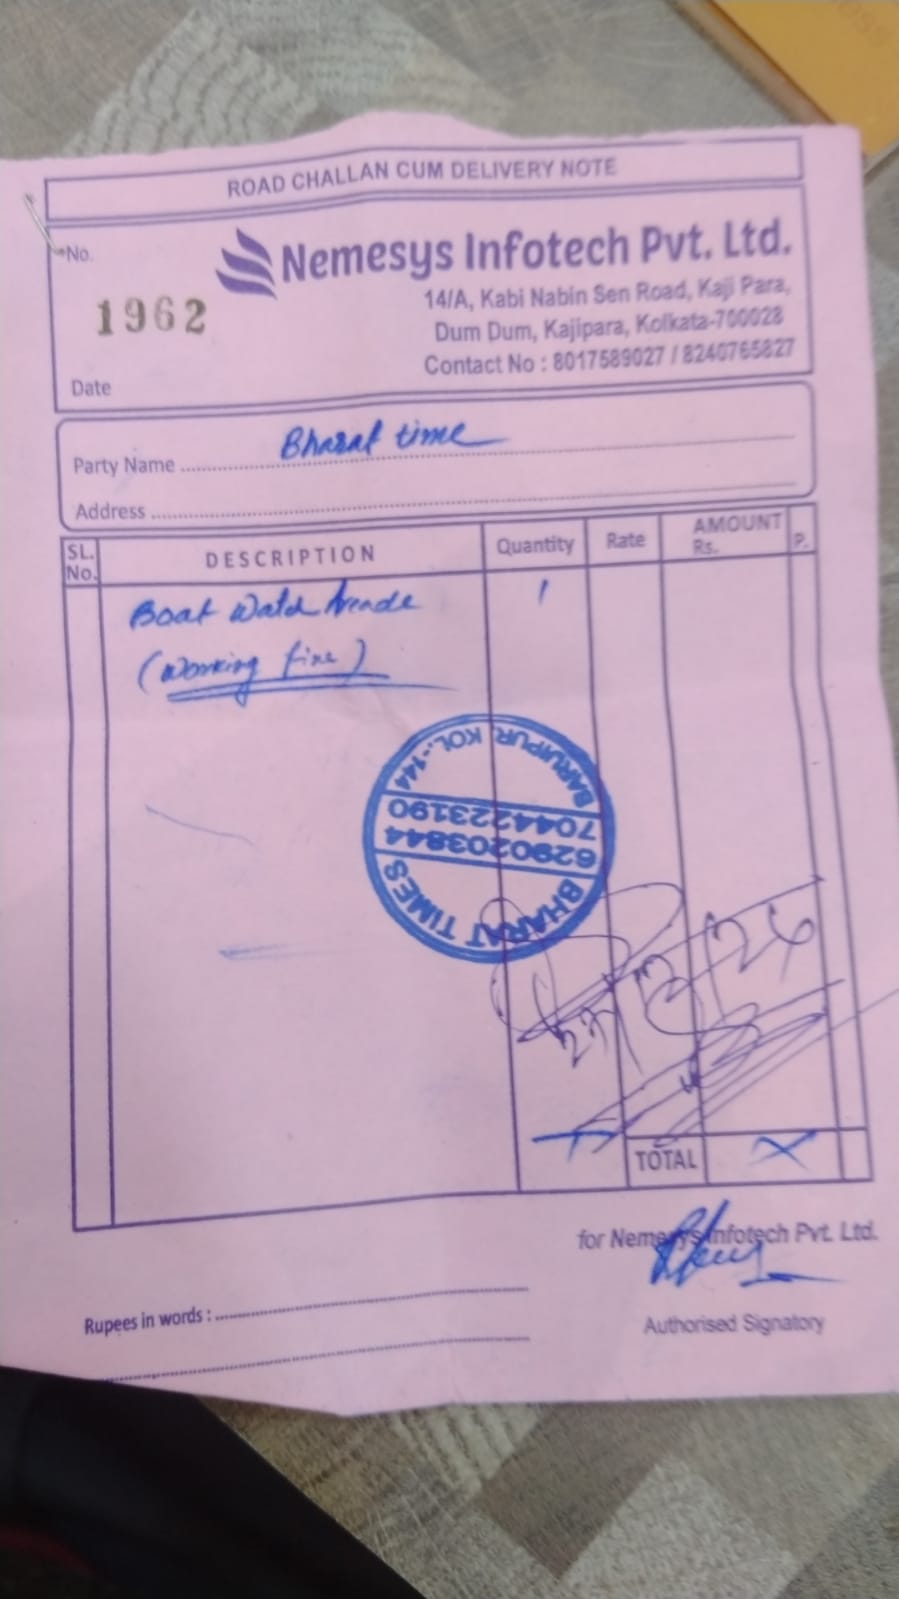 ROAD CHALLAN CUM DELIVERY NOTE
No.
1962
Nemesys Infotech Pvt. Ltd.
14/A, Kabi Nabin Sen Road, Kaji Para,
Dum Dum, Kajipara, Kolkata-700028
Contact No : 8017589027 / 8240765827
Date
Party Name Bharat time
Address
SL. No. DESCRIPTION Quantity Rate AMOUNT Rs. P.
Boat Watch 1
(Working fine)
BHARAT TIMES
6290203844
7044223190
BARUIPUR, KOL.-144
27/3/26
TOTAL X
for Nemesys Infotech Pvt. Ltd.
Rupees in words :
Authorised Signatory